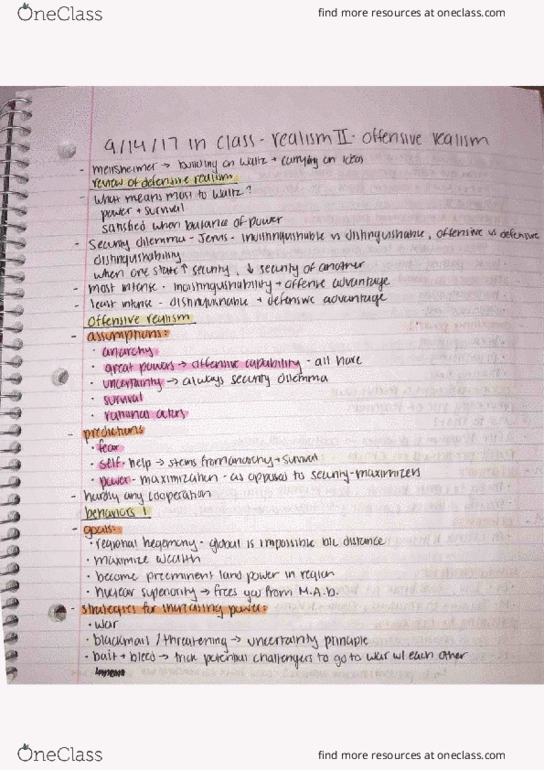 OneClass find more resources at oneclass.com
9/14/17 in class - realism II - offensive realism
- mearsheimer → building on Waltz + carrying on ideas
review of defensive realism
- What means most to Waltz?
power + survival
satisfied when balance of power
- Security dilemma - Jervis - indistinguishable vs distinguishable, offensive vs defensive
distinguishability
when one state ↑ security, ↓ security of another
- most intense - indistinguishability + offense advantage
- least intense - distinguishable + defensive advantage
offensive realism
- assumptions:
• anarchy
• great powers → offensive capability - all have
• uncertainty → always security dilemma
• survival
• rational actors
- predictions
• fear
• self-help → stems from anarchy + survival
• power-maximization - as opposed to security-maximizers
- hardly any cooperation
behaviors
- goals:
• regional hegemony - global is impossible b/c distance
• maximize wealth
• become preeminent land power in region
• nuclear superiority → frees you from M.A.D.
- strategies for increasing power:
• war
• blackmail / threatening → uncertainty principle
• bait + bleed → trick potential challengers to go to war w/ each other
OneClass find more resources at oneclass.com